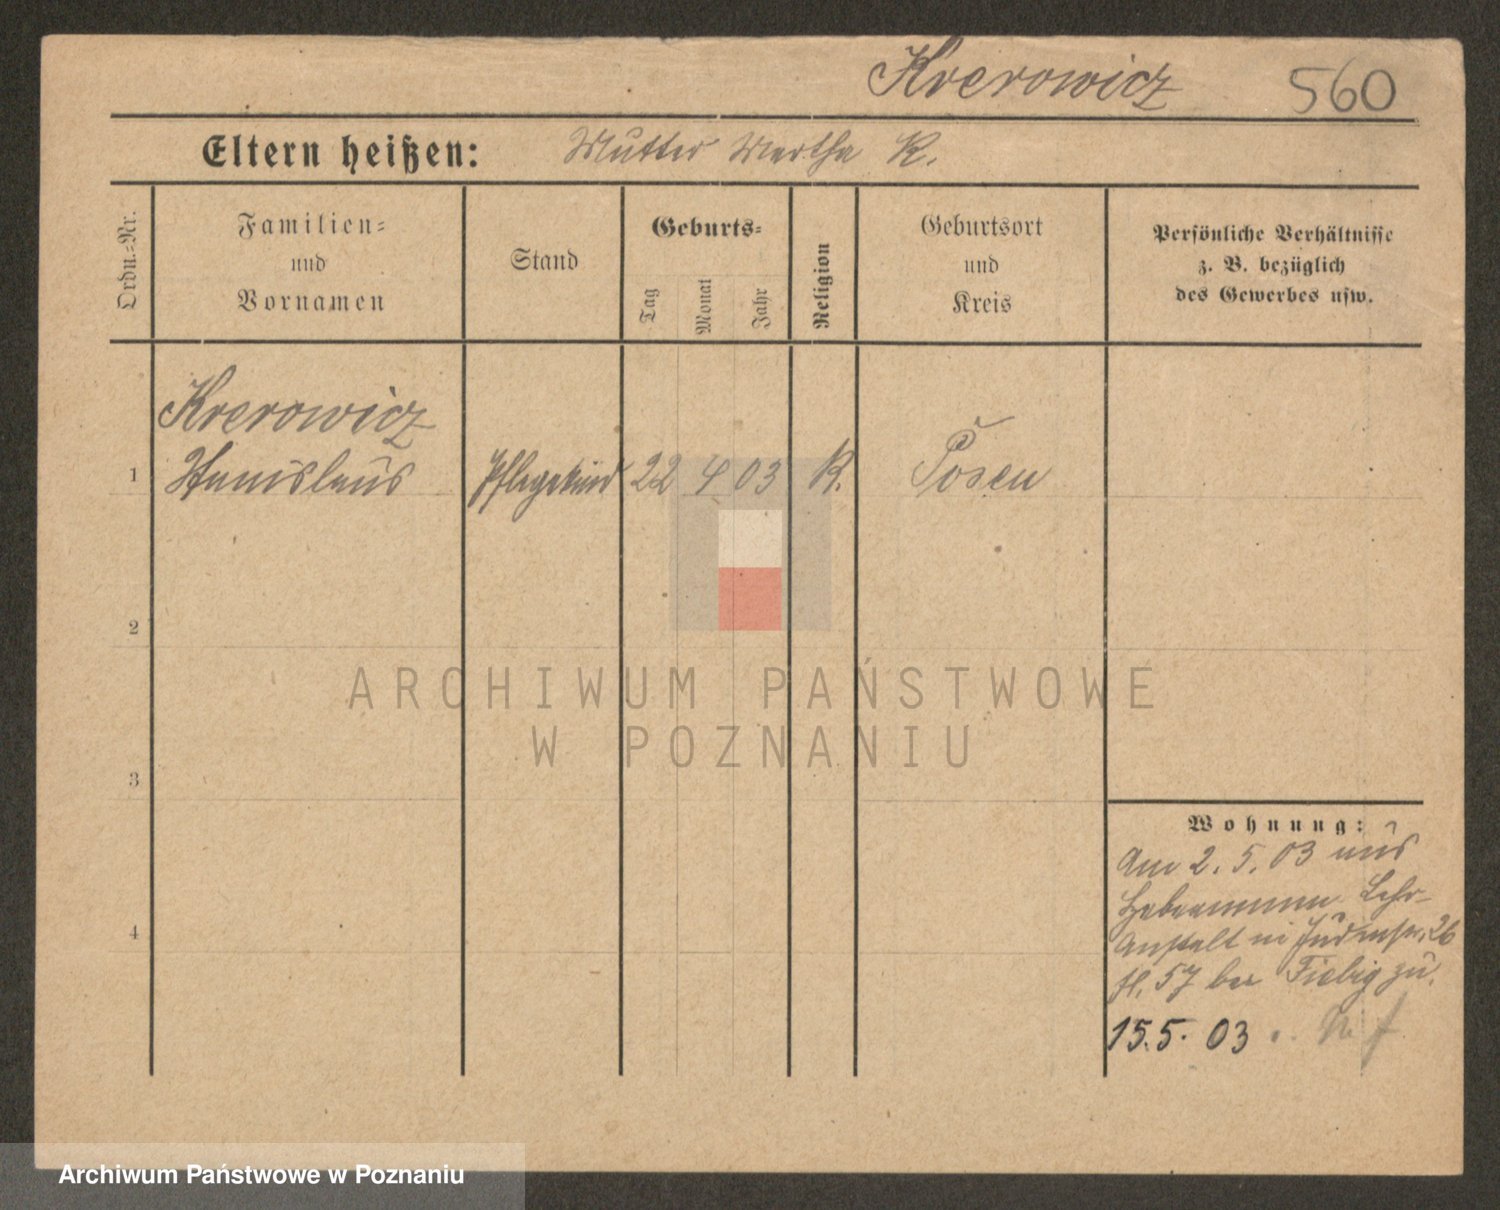 Krerowicz 560
Eltern heißen: Mutter Martha K.
Ordn.-Nr.
Familien-
und
Vornamen
Stand
Geburts-
Tag
Monat
Jahr
Religion
Geburtsort
und
Kreis
Persönliche Verhältnisse
z. B. bezüglich
des Gewerbes usw.
Krerowicz
1 Stanislaus Pflegekind 22 4 03 K. Posen
2
3
4
Wohnung:
Am 2. 5. 03 aus
Hebammen Lehr-
Anstalt in Judenstr. 26
fl. 57 bei Fiebig zu.
15.5. 03
ARCHIWUM PAŃSTWOWE
W POZNANIU
Archiwum Państwowe w Poznaniu